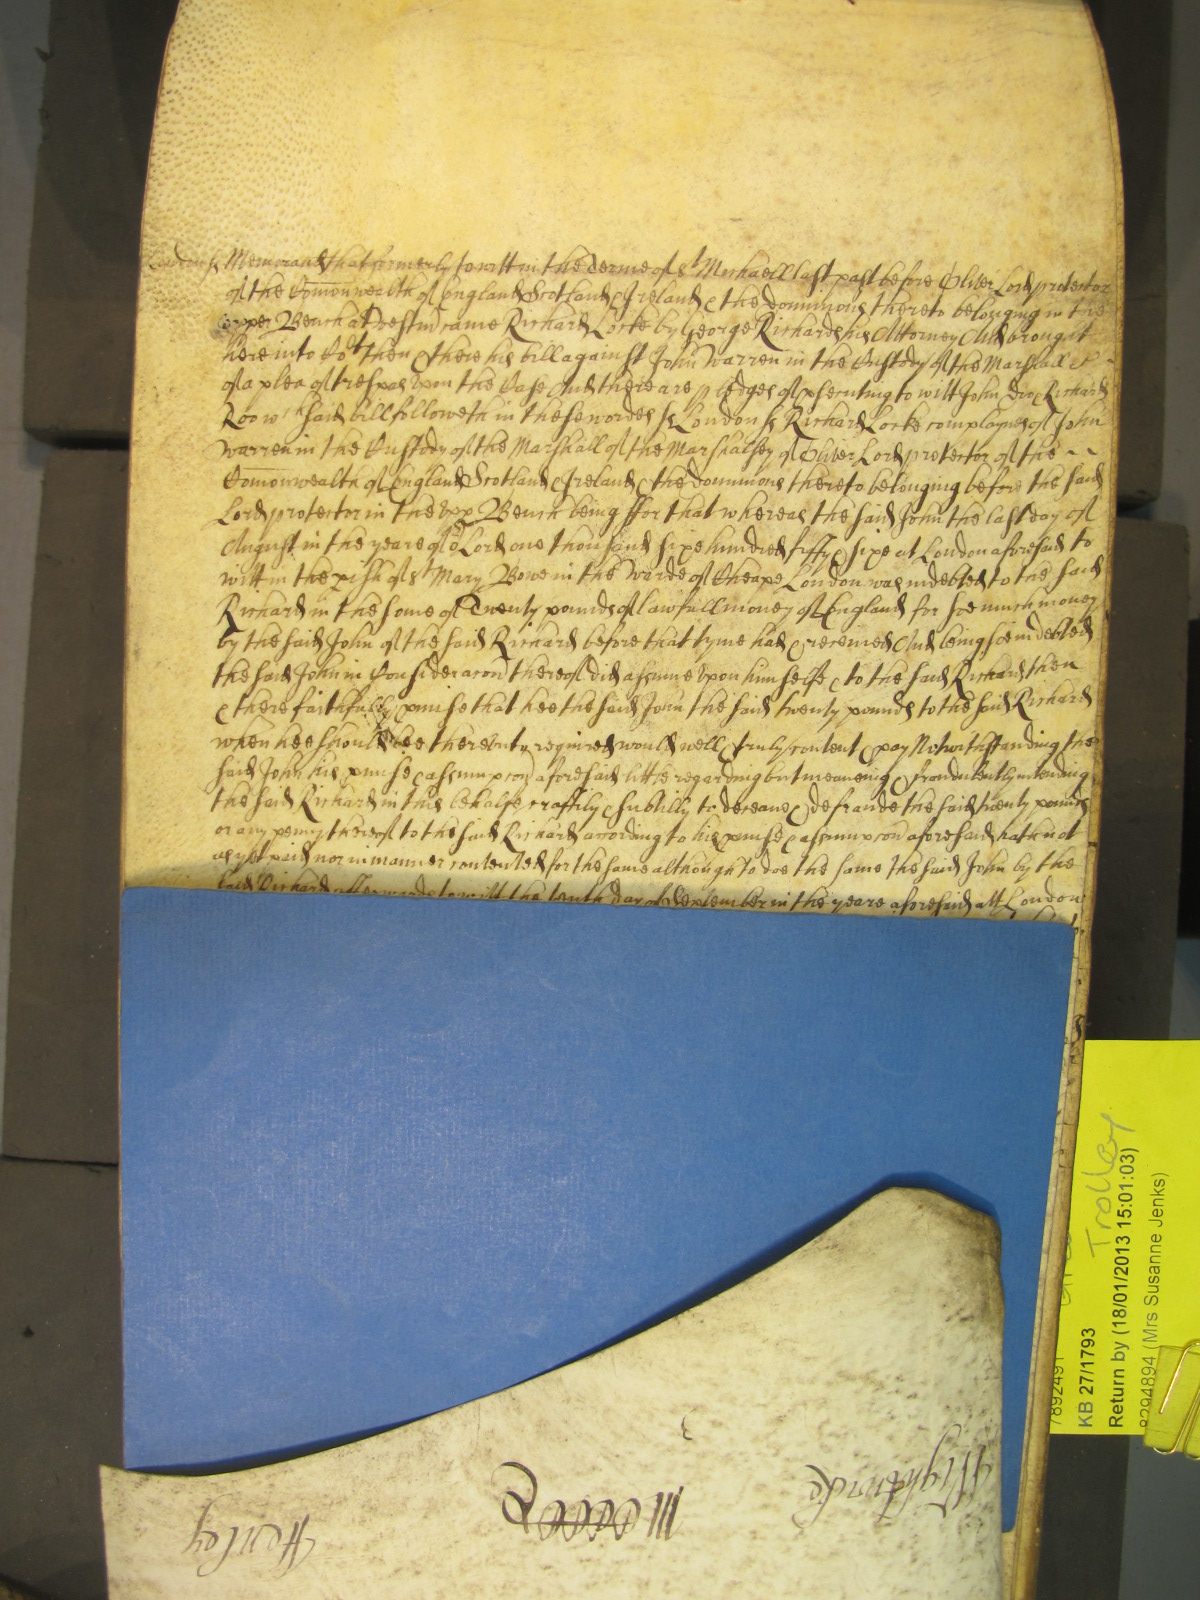 London ss Memorand that formerly to witt in the Terme of St Michaell last past before Oliver Lord protector
of the Comonwealth of England Scotland & Ireland & the dominions thereto belonging in the
upper Bench at Westmr came Richard Locke by George Richards his Attorney And brought
here into Cort then & there his bill against John Warren in the Custody of the Marshall &c
of a plea of trespas upon the Case And there are pledges of psecuting to witt John Doo & Richard
Roo wch said bill followeth in these wordes ss London ss Richard Locke complaynes of John
Warren in the Custody of the Marshall of the Marshalsey of Oliver Lord protector of the
Comonwealth of England Scotland & Ireland & the dominions thereto belonging before the said
Lord protector in the Upp Bench being ffor that whereas the said John the last day of
August in the yeare of or Lord one thousand sixe hundred fiffty & sixe at London aforesaid to
witt in the pish of St Mary Bowe in the Warde of Cheape London was indebted to the said
Richard in the some of Twenty pounds of lawfull money of England for soe much money
by the said John of the said Richard before that tyme had & received And being soe indebted
the said John in Consideracon thereof did assume upon himselfe & to the said Richard then
& there faithfully pmise that hee the said John the said twenty pounds to the said Richard
when hee should bee thereunto required would well & truly content & pay Notwithstanding the
said John his pmise & assumpcon aforesaid little regarding but meaneing & fraudulently intending
the said Richard in this behalfe craftily & subtilly to deceave & defraude the said twenty pounds
or any penny thereof to the said Richard according to his pmise & assumpcon aforesaid hath not
as yet paid nor in manner contented for the same although to doe the same the said John by the
said Richard afterwards to witt the tenth day of September in the yeare aforesaid att London
Trolley
7892491
KB 27/1793
Return by (18/01/2013 15:01:03)
8294894 (Mrs Susanne Jenks)
Henley
Wightwicke